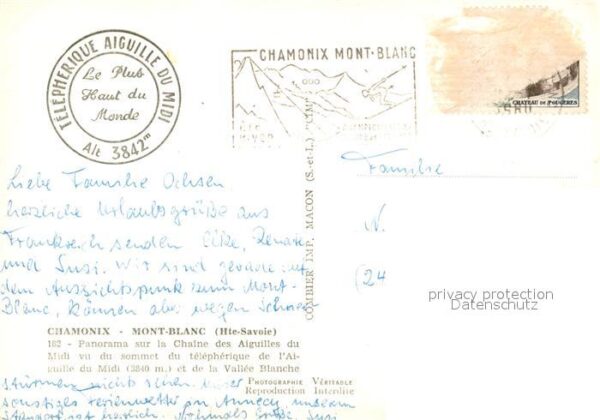 TÉLÉPHERIQUE AIGUILLE DU MIDI
Le Plus
Haut du
Monde
Alt 3842m
CHAMONIX MONT-BLANC
CHATEAU DE FOUGERES
Liebe Familie Ochsen
herzliche Urlaubsgrüße aus
Frankreich senden Elke, Renate
und Susi. Wir sind gerade auf
dem Aussichtspunkt zum Mont-
Blanc, können aber wegen
CHAMONIX - MONT-BLANC (Hte-Savoie)
102 - Panorama sur la Chaîne des Aiguilles du
Midi vu du sommet du téléphérique de l'Ai-
guille du Midi (3840 m.) et de la Vallée Blanche
Photographie Véritable
Reproduction Interdite
nichts sehen. Unser
sonstiges Ferienwetter in Annecy, unserem
ist herrlich. Nochmals Grüße, Susi
COMBIER IMP. MACON (S.-et-L.)
Familie
N.
(24
privacy protection
Datenschutz